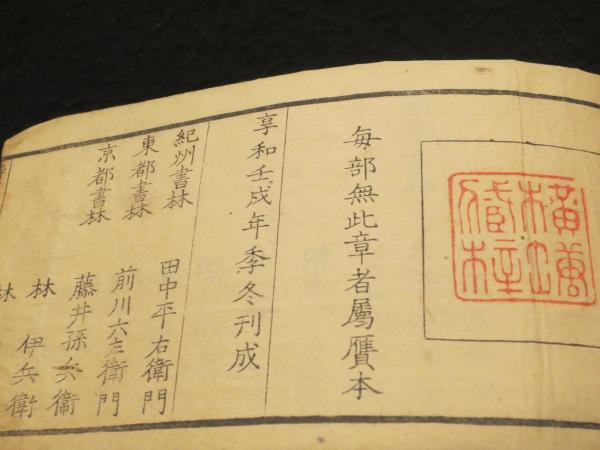 毎部無此章者屬贋本
享和壬戌年季冬刊成
紀州書林 田中平右衛門
東都書林 前川六左衛門
京都書林 藤井孫兵衛
林 伊兵衛
林